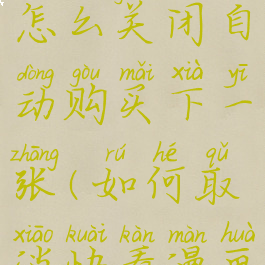 怎么关闭自
dòng gòu mǎi xià yī
动购买下一
zhāng rú hé qǔ
张(如何取
xiāo kuài kàn màn huà
消快看漫画